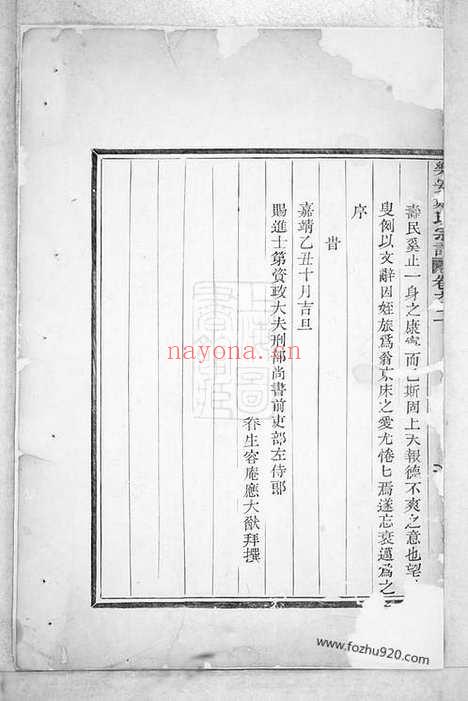 壽民奚止一身之康寧而已斯固上天報德不爽之意也望
叟例以文辭因姪旅爲翁東床之愛尤惓七焉遂忘衰邁爲之
序
旹
嘉靖乙丑十月吉旦
賜進士第資政大夫刑部尚書前吏部左侍郎
眷生容庵應大猷拜撰
宗譜
卷
二
nayona.cn
www.fozhu920.com